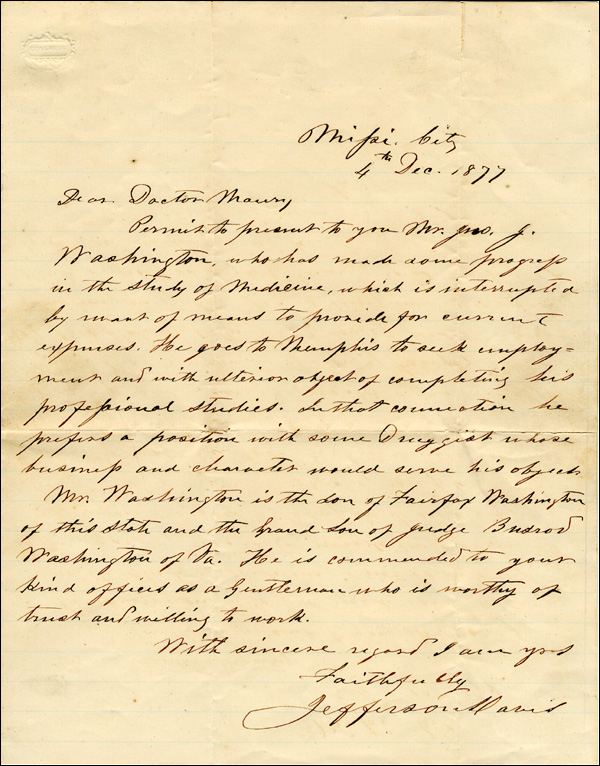 Missi. City
4th Dec. 1877
Dear Doctor Maury,
Permit to present to you Mr. Jno. J.
Washington, who has made some progress
in the study of Medicine, which is interrupted
by want of means to provide for current
expenses. He goes to Memphis to seek employ-
ment and with ulterior object of completing his
professional studies. In that connection he
prefers a position with some Druggist whose
business and character would serve his object.
Mr. Washington is the son of Fairfax Washington
of this State and the Grand Son of Judge Busrod
Washington of Va. He is commended to your
kind offices as a Gentleman who is worthy of
trust and willing to work.
With sincere regard I am yrs
Faithfully
Jefferson Davis